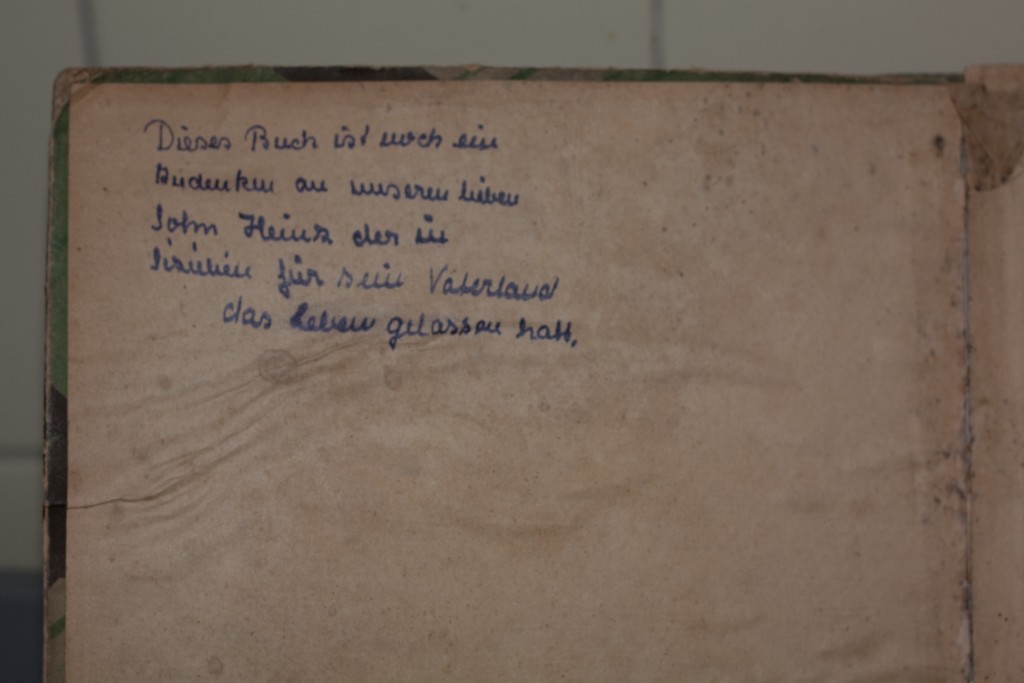 Dieses Buch ist noch ein
Andenken an unseren lieben
Sohn Heinz der in
Sizilien für sein Vaterland
das Leben gelassen hatt.